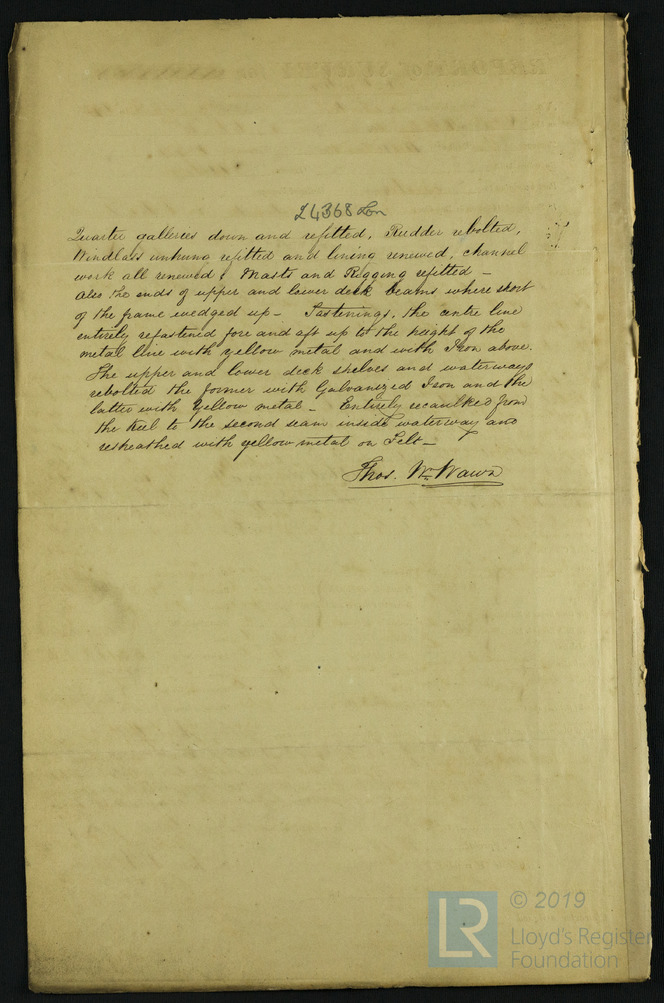 24368 Lon
Quarter galleries down and refitted, Rudder rebolted,
Windlass unhung refitted and lining renewed, channel
work all renewed & Masts and Rigging refitted –
also the ends of upper and lower deck beams where short
of the frame wedged up – Fastenings, the centre line
entirely refastened fore and aft up to the height of the
metal line with yellow metal and with Iron above.
The upper and lower deck shelves and waterways
rebolted the former with Galvanized Iron and the
latter with Yellow metal – Entirely recaulked from
the keel to the second seam inside waterway and
resheathed with yellow metal on Felt –
Thos. Wm. Wawn
REPORT of SURVEY for
LR
© 2019
Lloyd's Register
Foundation